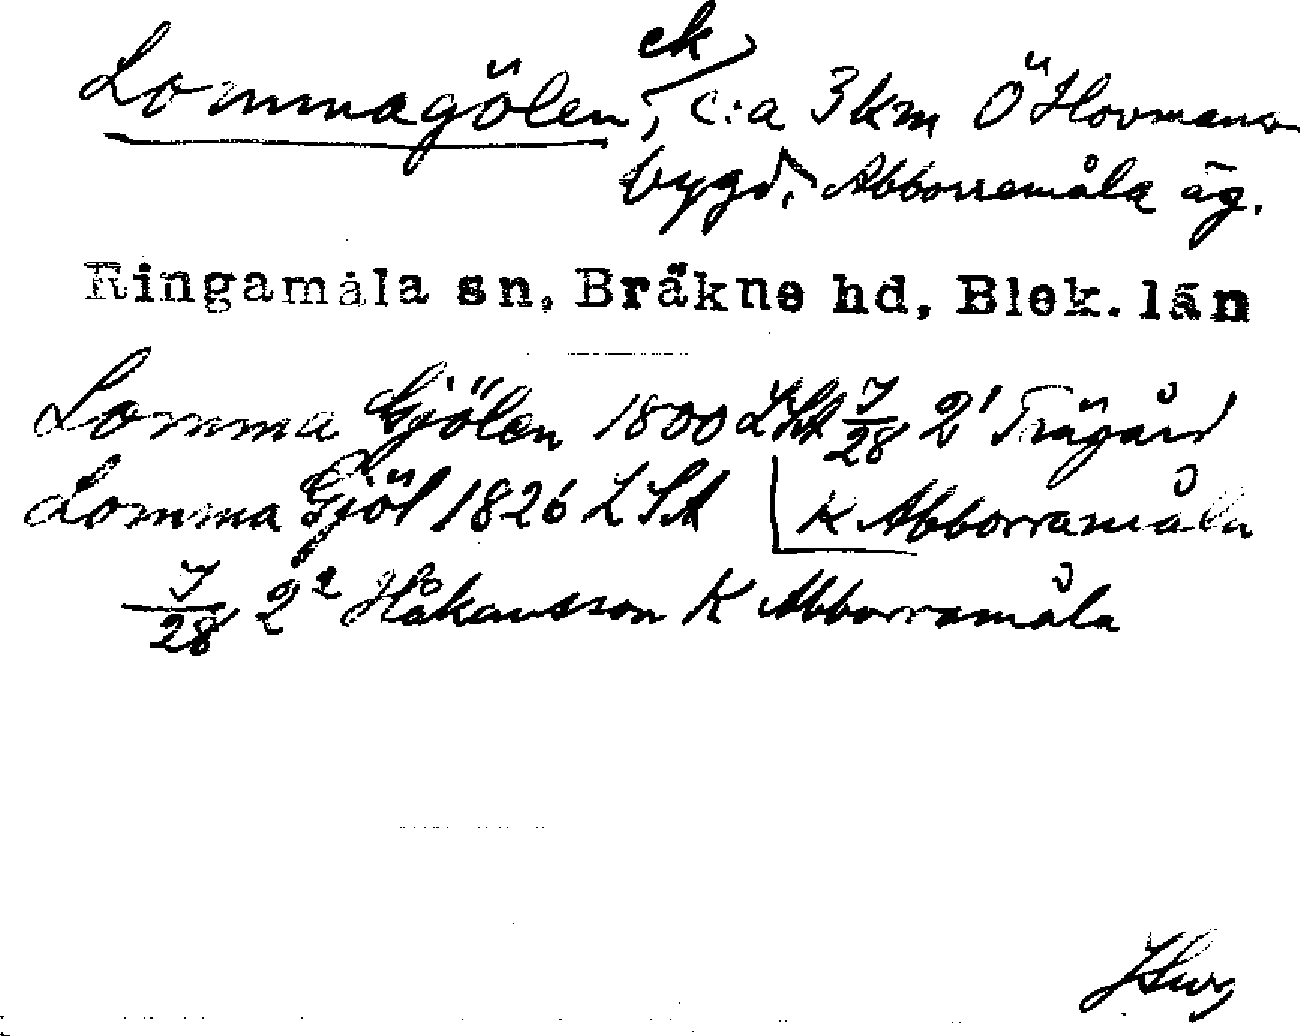 ek
Lommagölen, c:a 3 km Ö Hovmans-
bygd, Abborremåla äg.
Ringamåla sn, Bräkne hd, Blek. län
Lomma Gjölen 1800 LSA J/28 2¹ Trägård
Lomma Gjöl 1826 LSA K Abborramåla
J/28 2² Håkansson K Abborramåla